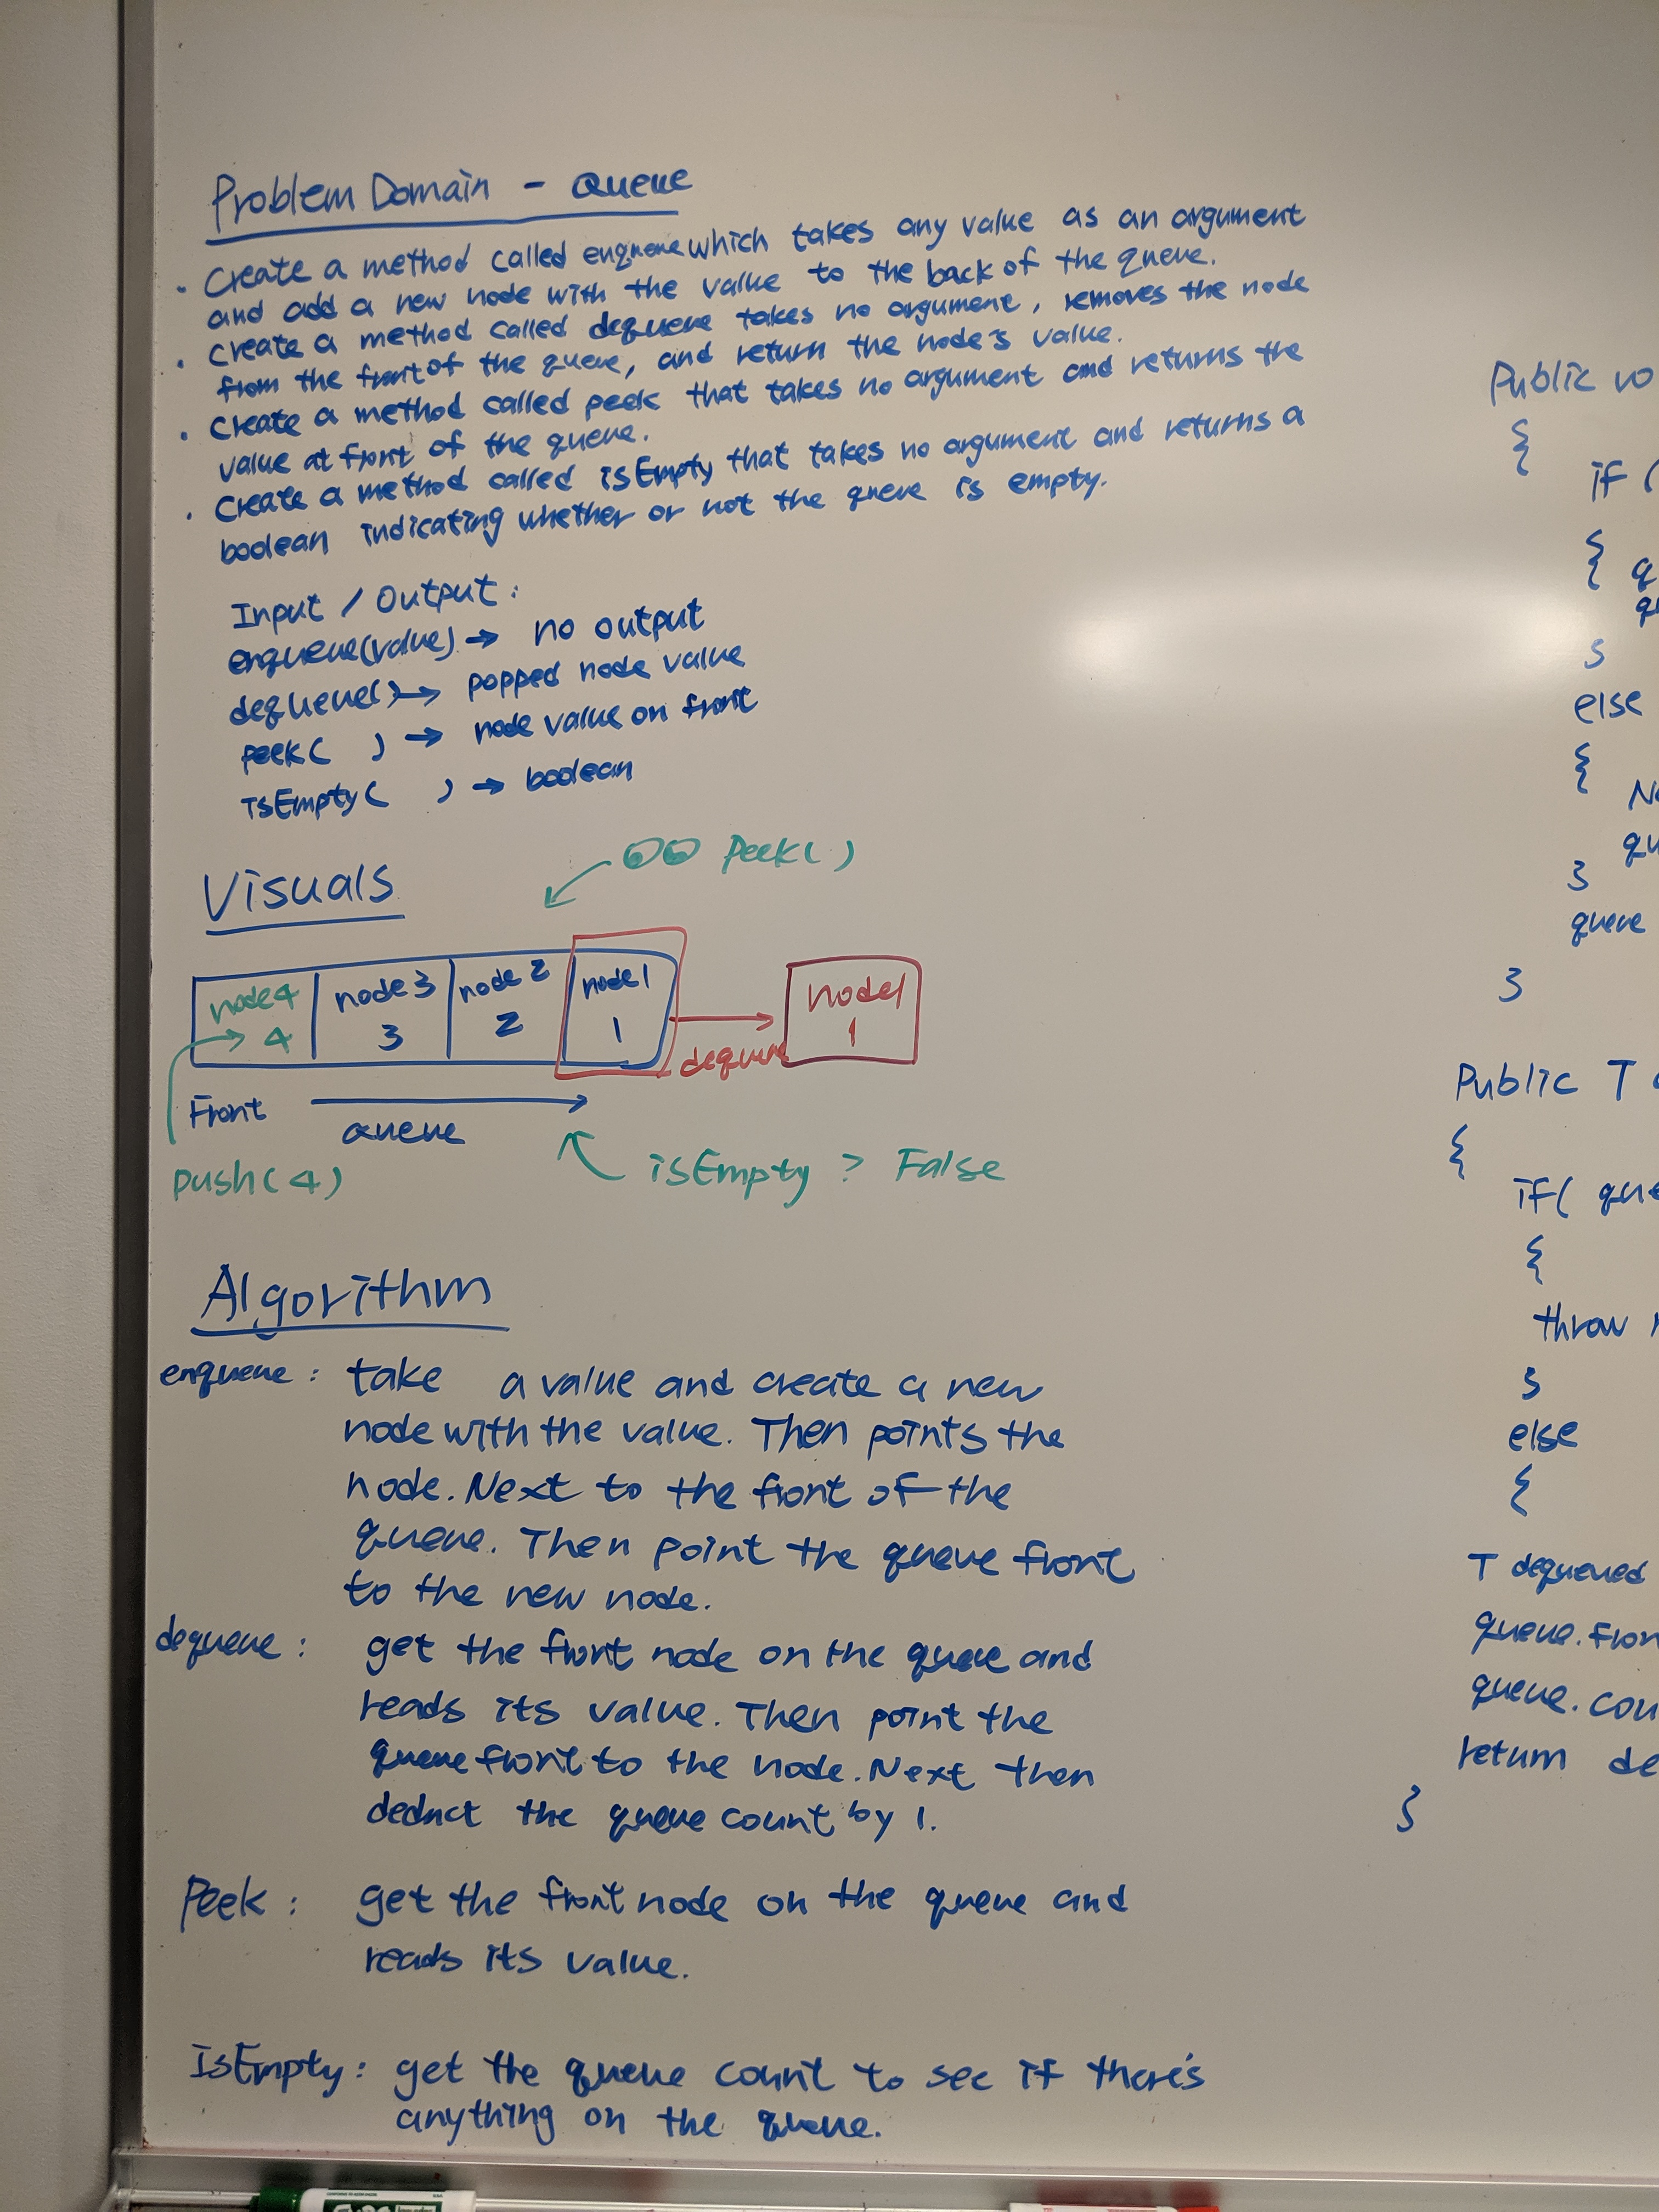 Problem Domain - Queue
• Create a method called enqueue which takes any value as an argument
and add a new node with the value to the back of the queue.
• Create a method called dequeue takes no argument, removes the node
from the front of the queue, and return the node's value.
• Create a method called peek that takes no argument and returns the
value at front of the queue.
• Create a method called isEmpty that takes no argument and returns a
boolean indicating whether or not the queue is empty.
Input / Output :
enqueue(value) → no output
dequeue() → popped node value
peek( ) → node value on front
IsEmpty( ) → boolean
Visuals
Peek( )
node4 node3 node2 node1 node1
4 3 2 1 1
dequeue
Front
queue
push(4)
isEmpty ? False
Algorithm
enqueue : take a value and create a new
node with the value. Then points the
node.Next to the front of the
queue. Then point the queue front
to the new node.
dequeue : get the front node on the queue and
reads its value. Then point the
queue front to the node.Next then
deduct the queue count by 1.
Peek : get the front node on the queue and
reads its value.
IsEmpty : get the queue count to see if there's
anything on the queue.
Public vo
{
if (
{ q
qu
}
else
{
N
qu
}
queue
}
Public T
{
if( que
{
throw
}
else
{
T dequeued
queue.Fron
queue.Cou
return de
}